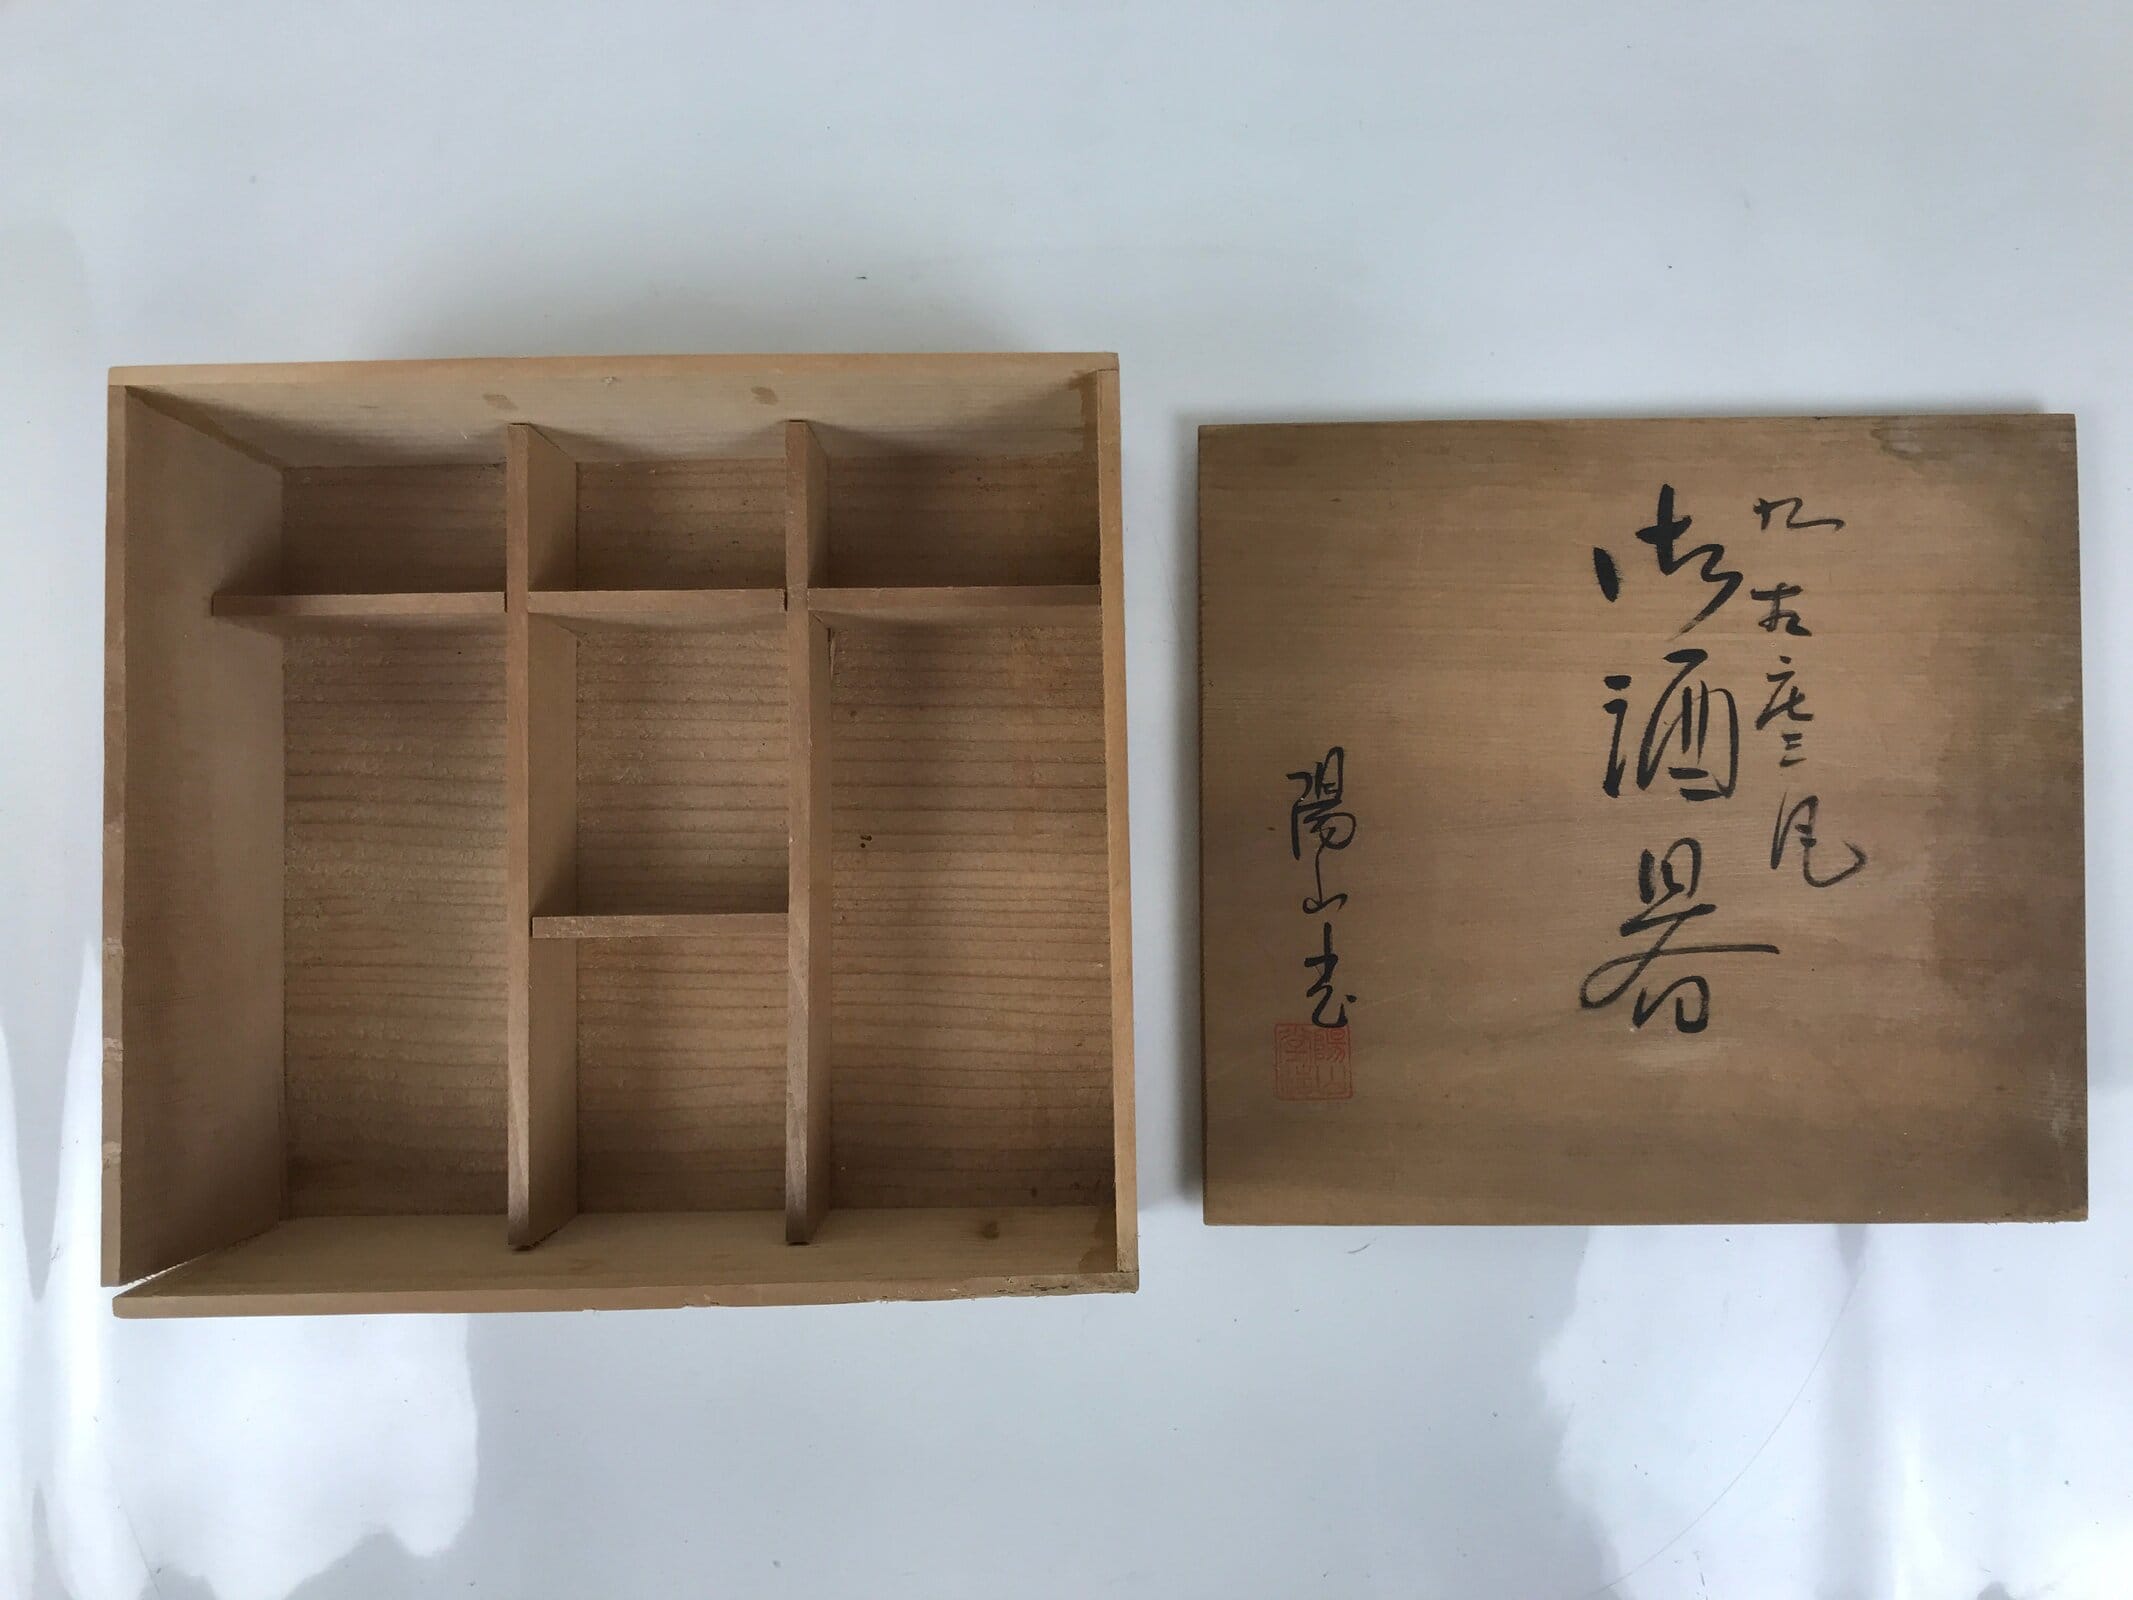 九谷庄三風
御酒器
陽山堂
陽山